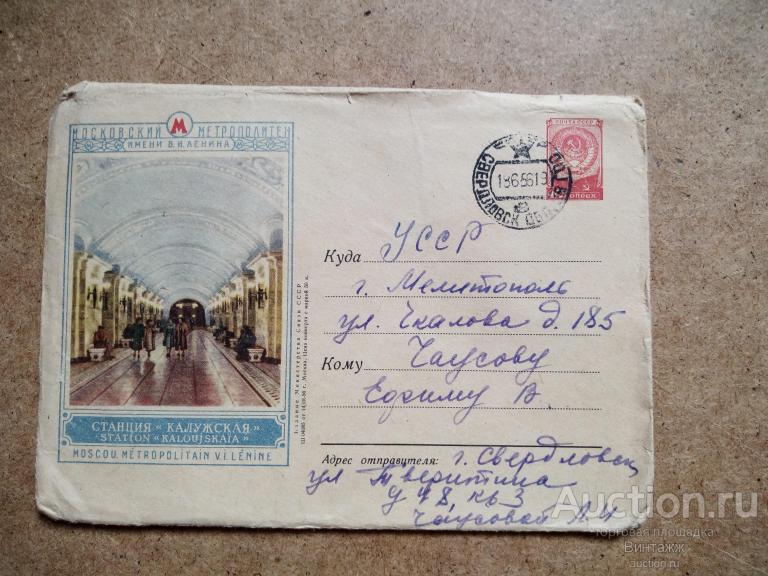 МОСКОВСКИЙ М МЕТРОПОЛИТЕН
ИМЕНИ В.И.ЛЕНИНА
СТАНЦИЯ "КАЛУЖСКАЯ"
STATION "KALOUJSKAÏA"
MOSCOU. MÉTROPOLITAIN V.I. LÉNINE
Издание Министерства Связи СССР
ПОЧТА СССР
КОПЕЕК
СВЕРДЛОВСК ОБЛ.
Куда УССР
г. Мелитополь
ул. Чкалова д. 185
Кому Чаусову
Ефиму В.
Адрес отправителя: г. Свердловск
ул Тверитина
кв 3
Чаусовой Л.И
Auction.ru
торговая площадка
Винтажж
auction.ru